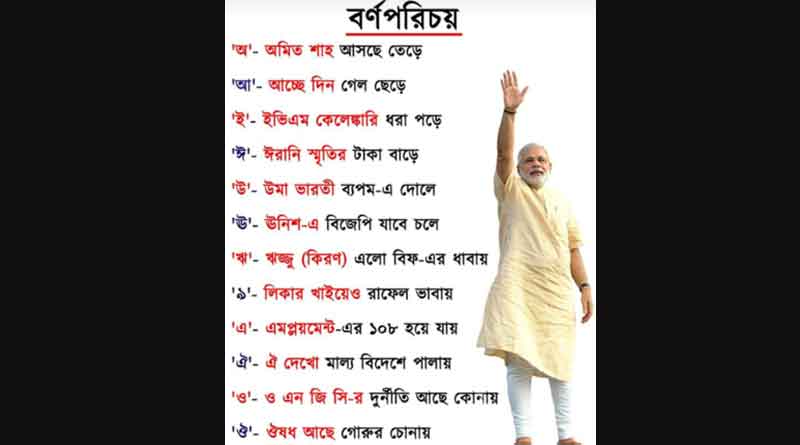 বর্ণপরিচয়
'অ'- অমিত শাহ আসছে তেড়ে
'আ'- আচ্ছে দিন গেল ছেড়ে
'ই'- ইভিএম কেলেঙ্কারি ধরা পড়ে
'ঈ'- ঈরানি স্মৃতির টাকা বাড়ে
'উ'- উমা ভারতী ব্যপম-এ দোলে
'ঊ'- ঊনিশ-এ বিজেপি যাবে চলে
'ঋ'- ঋজ্জু (কিরণ) এলো বিফ-এর ধাবায়
'৯'- লিকার খাইয়েও রাফেল ভাবায়
'এ'- এমপ্লয়মেন্ট-এর ১০৮ হয়ে যায়
'ঐ'- ঐ দেখো মাল্য বিদেশে পালায়
'ও'- ও এন জি সি-র দুর্নীতি আছে কোনায়
'ঔ'- ঔষধ আছে গোরুর চোনায়